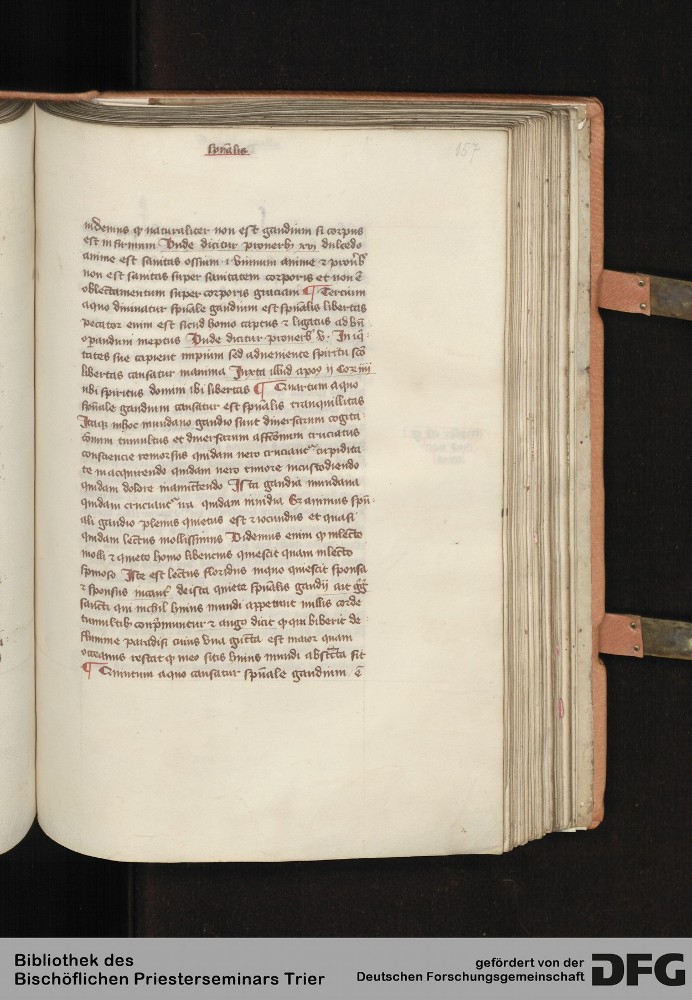 spūalis
157
videmus qꝫ naturaliter non est gaudium si corpus
est infirmum Unde dicitur prouerbꝫ xvi dulcedo
anime est sanitas ossium ⁊
non est sanitas super sanitatem corporis et non ē
oblectamentum super corporis graciam ¶ Tercium
a quo diriuatur spūale gaudium est spūalis libertas
Peccator enim est sicud homo captus ⁊ ligatus ad
operandum ineptus Unde dicitur prouerbꝫ v. In iqͥ
tates sue capient impium sed adueniente spiritu sco
libertas causatur Iuxta illud apoꝫ ij Cor iij
ubi spiritus domini ibi libertas ¶ Quartum a quo
spūale gaudium causatur est spūalis tranquillitas
Itaqꝫ in hoc mundano gaudio sunt diuersarum cogita
cionum tumultus et diuersarum affcōnum cruciatus
consciencie remorsus quidam uero cruciant cupidita
te in acquirendo quidam uero timore in custodiendo
quidam dolore in amittendo Ista gaudia mundana
quidam cruciant ira quidam inuidia Et animus spū
ali gaudio plenus quietus est ⁊ iocundus et quasi
quidam lectus mollissimus Uidemus enim qꝫ in lecto
molli ⁊ quieto homo libencius quiescit quam in lecto
spinoso Iste est lectus floridus in quo quiescit sponsa
⁊ sponsus de ista quiete spūalis gaudij ait gͥgͥ
sancti qui nichil huius mundi appetunt nullis corde
tumultibꝫ conpͥmuntur ⁊ augꝰ dicit qꝫ qui biberit de
flumine paradisi cuius una gutta est maior quam
occeanus restat qꝫ in eo sitis huius mundi abstcta sit
¶ Quintum a quo causatur spūale gaudium ē
Bibliothek des
Bischöflichen Priesterseminars Trier
gefördert von der
Deutschen Forschungsgemeinschaft
DFG